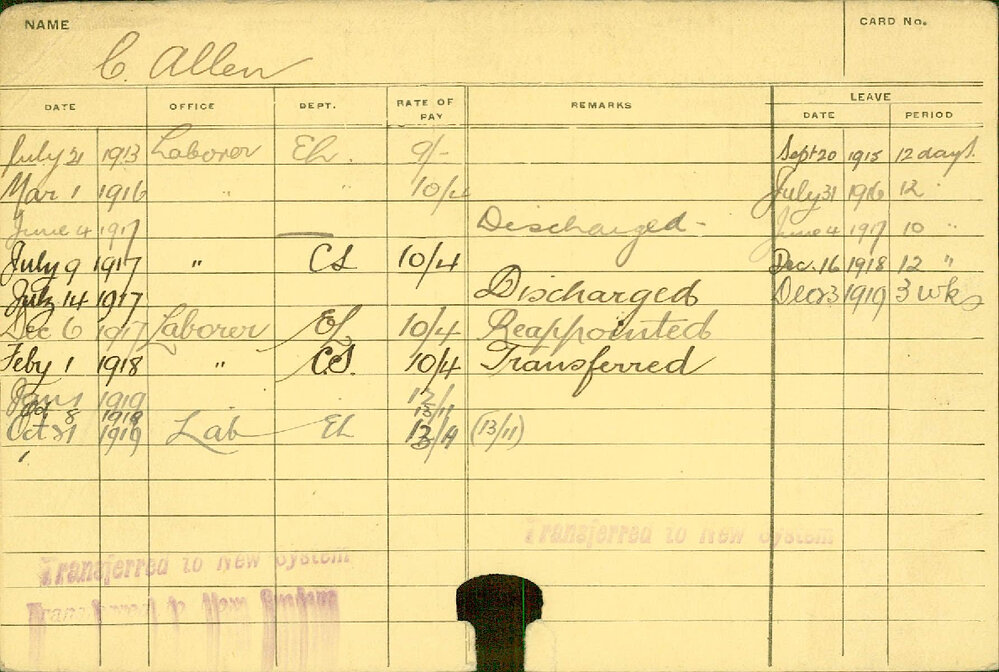 NAME
CARD No.
C. Allen
DATE OFFICE DEPT. RATE OF PAY REMARKS LEAVE
DATE PERIOD
July 21 1913 Laborer EL. 9/- Sept 20 1915 12 days.
Mar 1 1916 " " 10/4 July 31 1916 12 "
June 4 1917 Discharged - June 4 1917 10 "
July 9 1917 " CS 10/4 Dec. 16 1918 12 "
July 14 1917 Discharged Dec 23 1919 3 wks
Dec 6 1917 Laborer EL 10/4 Reappointed
Feby 1 1918 " C.S. 10/4 Transferred
Jan 1 1919 12/
8 1919 13/11
Oct 31 1919 Lab EL (13/11)
Transferred to New System
Transferred to New System
Transferred to New System